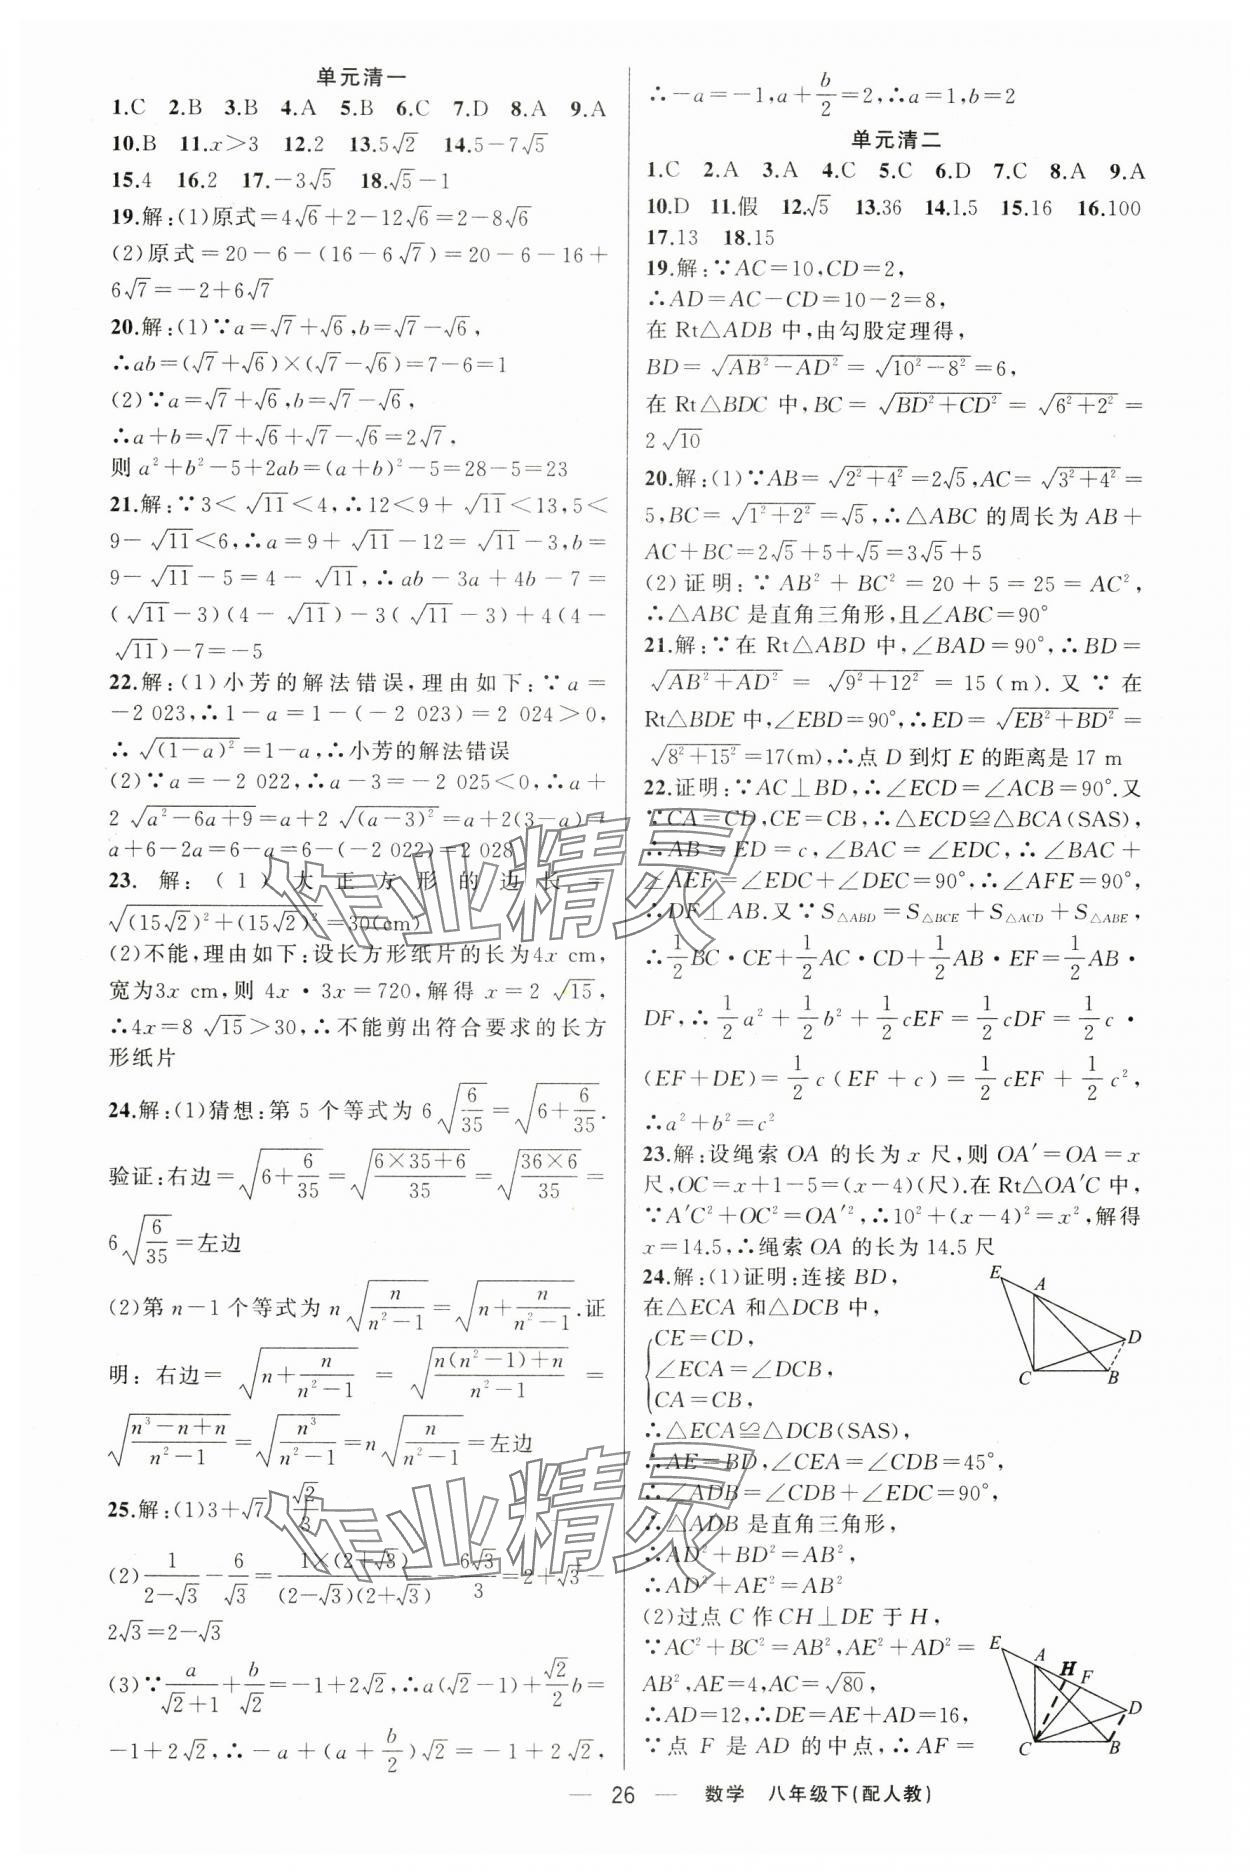 单元清一
1.C 2.B 3.B 4.A 5.B 6.C 7.D 8.A 9.A
10.B 11.x＞3 12.2 13.5√2 14.5－7√5
15.4 16.2 17.－3√5 18.√5－1
19.解:(1)原式＝4√6＋2－12√6＝2－8√6
(2)原式＝20－6－(16－6√7)＝20－6－16＋
6√7＝－2＋6√7
20.解:(1)∵a＝√7＋√6,b＝√7－√6,
∴ab＝(√7＋√6)×(√7－√6)＝7－6＝1
(2)∵a＝√7＋√6,b＝√7－√6,
∴a＋b＝√7＋√6＋√7－√6＝2√7,
则 a²＋b²－5＋2ab＝(a＋b)²－5＝28－5＝23
21.解:∵3＜√11＜4,∴12＜9＋√11＜13,5＜
9－√11＜6,∴a＝9＋√11－12＝√11－3,b＝
9－√11－5＝4－√11,∴ab－3a＋4b－7＝
(√11－3)(4－√11)－3(√11－3)＋4(4－
√11)－7＝－5
22.解:(1)小芳的解法错误,理由如下:∵a＝
－2 023,∴1－a＝1－(－2 023)＝2 024＞0,
∴√(1－a)²＝1－a,∴小芳的解法错误
(2)∵a＝－2 022,∴a－3＝－2 025＜0,∴a＋
2√(a²－6a＋9)＝a＋2√(a－3)²＝a＋2(3－a)＝
a＋6－2a＝6－a＝6－(－2 022)＝2 028
23.解:(1)大正方形的边长＝
√((15√2)²＋(15√2)²)＝30(cm)
(2)不能,理由如下:设长方形纸片的长为4x cm,
宽为3x cm,则 4x·3x＝720,解得 x＝2√15,
∴4x＝8√15＞30,∴不能剪出符合要求的长方
形纸片
24.解:(1)猜想:第 5 个等式为 6√(6/35)＝√(6＋6/35).
验证:右边＝√(6＋6/35)＝√((6×35＋6)/35)＝√((36×6)/35)＝
6√(6/35)＝左边
(2)第 n－1 个等式为 n√(n/(n²－1))＝√(n＋n/(n²－1)).证
明:右边＝√(n＋n/(n²－1))＝√((n(n²－1)＋n)/(n²－1))＝
√((n³－n＋n)/(n²－1))＝√(n³/(n²－1))＝n√(n/(n²－1))＝左边
25.解:(1)3＋√7 √2/3
(2)1/(2－√3)－6/√3＝1×(2＋√3)/((2－√3)(2＋√3))－6√3/3＝2＋√3－
2√3＝2－√3
(3)∵a/(√2＋1)＋b/√2＝－1＋2√2,∴a(√2－1)＋(√2/2)b＝
－1＋2√2,∴－a＋(a＋b/2)√2＝－1＋2√2,
∴－a＝－1,a＋b/2＝2,∴a＝1,b＝2
单元清二
1.C 2.A 3.A 4.C 5.C 6.D 7.C 8.A 9.A
10.D 11.假 12.√5 13.36 14.1.5 15.16 16.100
17.13 18.15
19.解:∵AC＝10,CD＝2,
∴AD＝AC－CD＝10－2＝8,
在 Rt△ADB 中,由勾股定理得,
BD＝√(AB²－AD²)＝√(10²－8²)＝6,
在 Rt△BDC 中,BC＝√(BD²＋CD²)＝√(6²＋2²)＝
2√10
20.解:(1)∵AB＝√(2²＋4²)＝2√5,AC＝√(3²＋4²)＝
5,BC＝√(1²＋2²)＝√5,∴△ABC 的周长为 AB＋
AC＋BC＝2√5＋5＋√5＝3√5＋5
(2)证明:∵AB²＋BC²＝20＋5＝25＝AC²,
∴△ABC 是直角三角形,且∠ABC＝90°
21.解:∵在 Rt△ABD 中,∠BAD＝90°,∴BD＝
√(AB²＋AD²)＝√(9²＋12²)＝15(m).又∵在
Rt△BDE 中,∠EBD＝90°,∴ED＝√(EB²＋BD²)＝
√(8²＋15²)＝17(m),∴点 D 到灯 E 的距离是 17 m
22.证明:∵AC⊥BD,∴∠ECD＝∠ACB＝90°.又
∵CA＝CD,CE＝CB,∴△ECD≌△BCA(SAS),
∴AB＝ED＝c,∠BAC＝∠EDC,∴∠BAC＋
∠AEF＝∠EDC＋∠DEC＝90°,∴∠AFE＝90°,
∴DF⊥AB.又∵S△ABD＝S△BCE＋S△ACD＋S△ABE,
∴1/2BC·CE＋1/2AC·CD＋1/2AB·EF＝1/2AB·
DF,∴1/2a²＋1/2b²＋1/2cEF＝1/2cDF＝1/2c·
(EF＋DE)＝1/2c(EF＋c)＝1/2cEF＋1/2c²,
∴a²＋b²＝c²
23.解:设绳索 OA 的长为 x 尺,则 OA′＝OA＝x
尺,OC＝x＋1－5＝(x－4)(尺).在Rt△OA′C 中,
∵A′C²＋OC²＝OA′²,∴10²＋(x－4)²＝x²,解得
x＝14.5,∴绳索 OA 的长为 14.5 尺
24.解:(1)证明:连接 BD,
在△ECA 和△DCB 中,
CE＝CD,
∠ECA＝∠DCB,
CA＝CB,
∴△ECA≌△DCB(SAS),
∴AE＝BD,∠CEA＝∠CDB＝45°,
∴∠ADB＝∠CDB＋∠EDC＝90°,
∴△ADB 是直角三角形,
∴AD²＋BD²＝AB²,
∴AD²＋AE²＝AB²
E A D C B
(2)过点 C 作 CH⊥DE 于 H,
∵AC²＋BC²＝AB²,AE²＋AD²＝
AB²,AE＝4,AC＝√80,
∴AD＝12,∴DE＝AE＋AD＝16,
∵点 F 是 AD 的中点,∴AF＝
E A H F D C B
— 26 — 数学 八年级下(配人教)
作业精灵
作业精灵